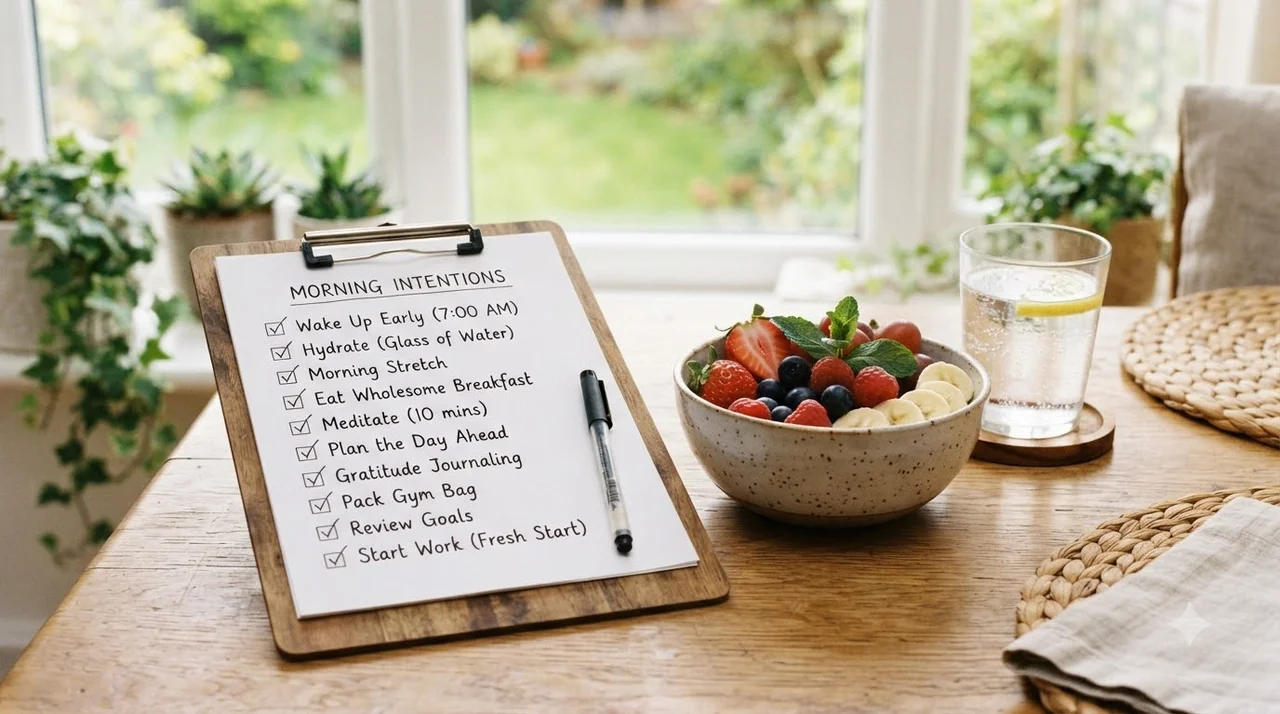 MORNING INTENTIONS
☑ Wake Up Early (7:00 AM)
☑ Hydrate (Glass of Water)
☑ Morning Stretch
☑ Eat Wholesome Breakfast
☑ Meditate (10 mins)
☑ Plan the Day Ahead
☑ Gratitude Journaling
☑ Pack Gym Bag
☑ Review Goals
☑ Start Work (Fresh Start)